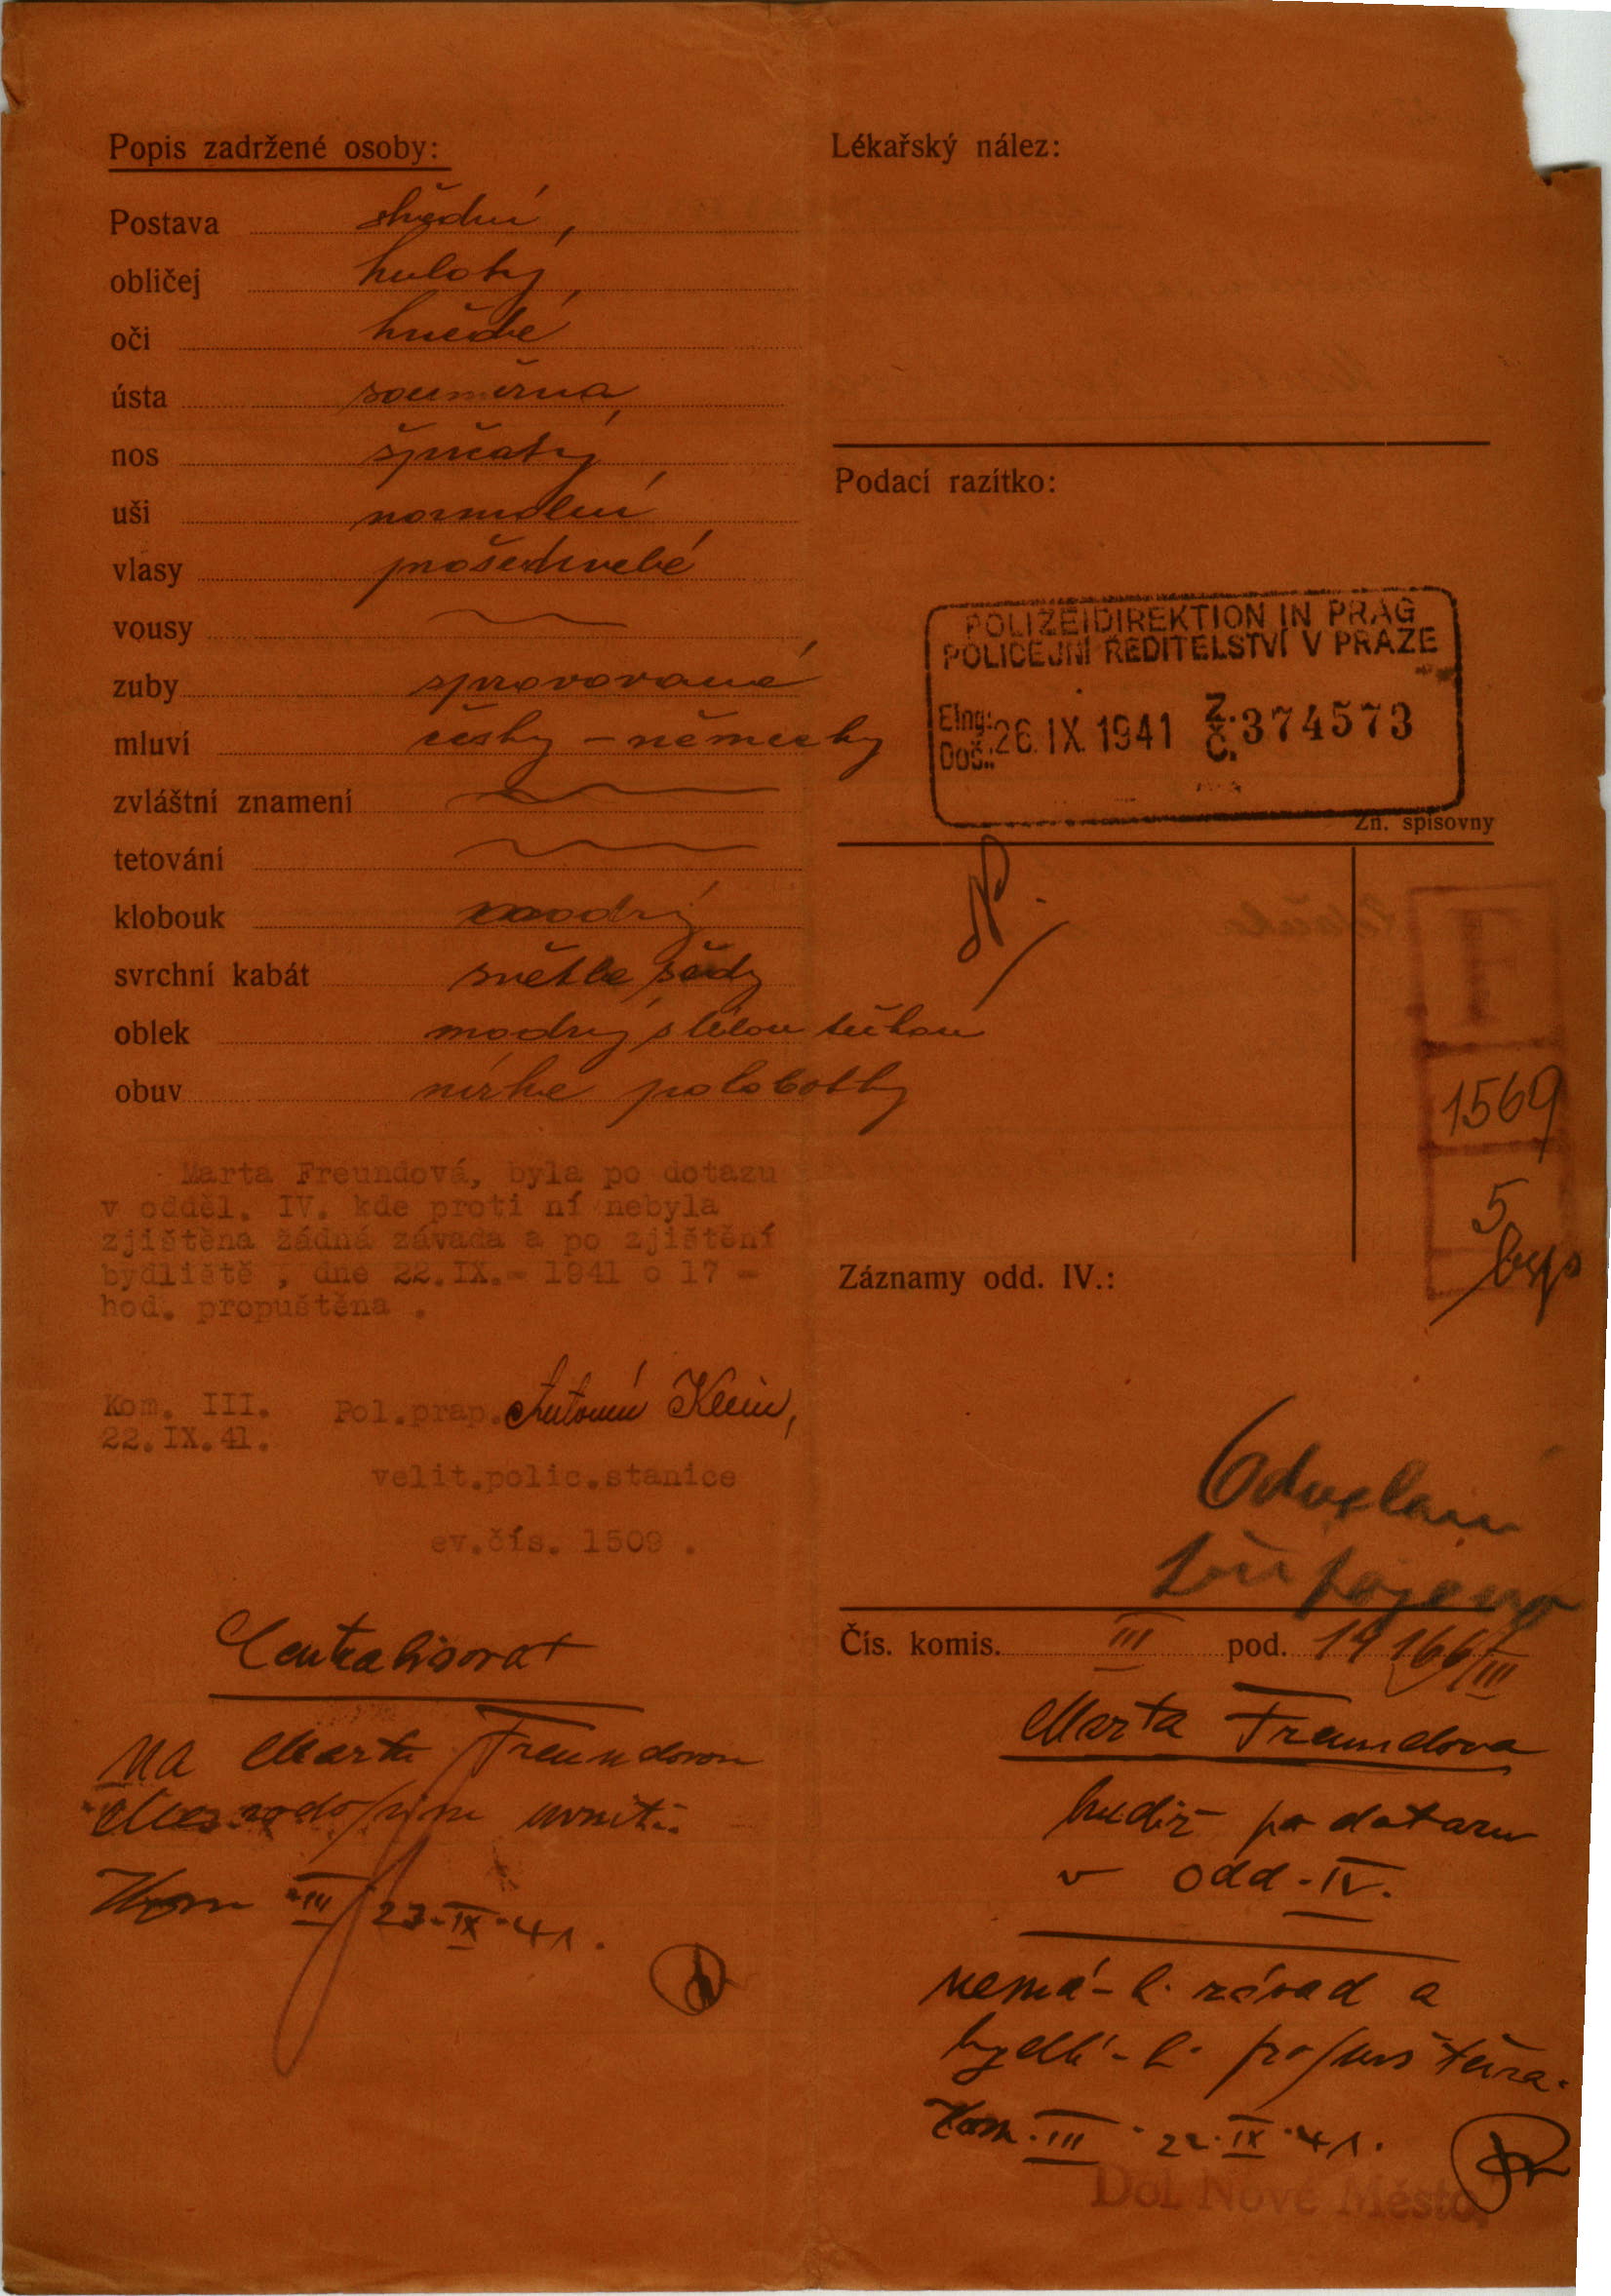 Popis zadržené osoby:
Postava střední,
obličej kulatý,
oči hnědé
ústa souměrná,
nos špičatý,
uši normální,
vlasy prošedivělé
vousy
zuby spravované
mluví česky – německy
zvláštní znamení
tetování
klobouk modrý
svrchní kabát světle šedý
oblek modrý s bílou
obuv nízké polobotky
Marta Freundová, byla po dotazu
v odděl. IV. kde proti ní nebyla
zjištěna žádná závada a po zjištění
bydliště , dne 22.IX.- 1941 o 17 -
hod. propuštěna .
Kom. III. Pol.prap. Antonín Klein,
22.IX.41.
velit.polic.stanice
ev.čís. 1509 .
Centralisovat
na Martu Freundovou
Kom III 23.IX.41.
Lékařský nález:
Podací razítko:
POLIZEIDIREKTION IN PRAG
POLICEJNÍ ŘEDITELSTVÍ V PRAZE
Eing: Z.
Doš.: 26. IX. 1941 Č. 374573
Zn. spisovny
F
1569
5
Záznamy odd. IV.:
Odvolání
Čís. komis. III pod. 19166/III
Marta Freundova
budiž po dotazu
v odd. IV.
nemá-li závad a
bydlí-li propuštěna.
Kom. III. 22.IX.41.
Dol. Nové Město,